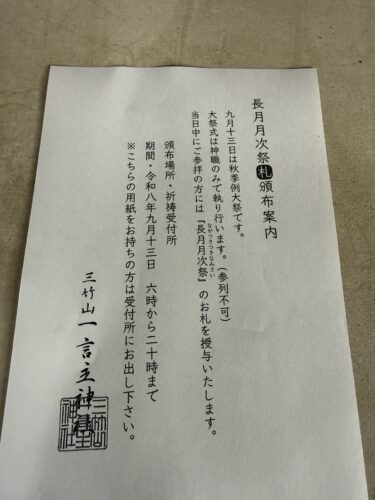 長月月次祭札頒布案内
九月十三日は秋季例大祭です。
大祭式は神職のみで執り行います。(参列不可)
当日中にご参拝の方には『長月月次祭』のお札を授与いたします。
ながつきつきなみさい
頒布場所・祈祷受付所
期間・令和八年九月十三日 六時から二十時まで
※こちらの用紙をお持ちの方は受付所にお出し下さい。
三竹山一言主神社